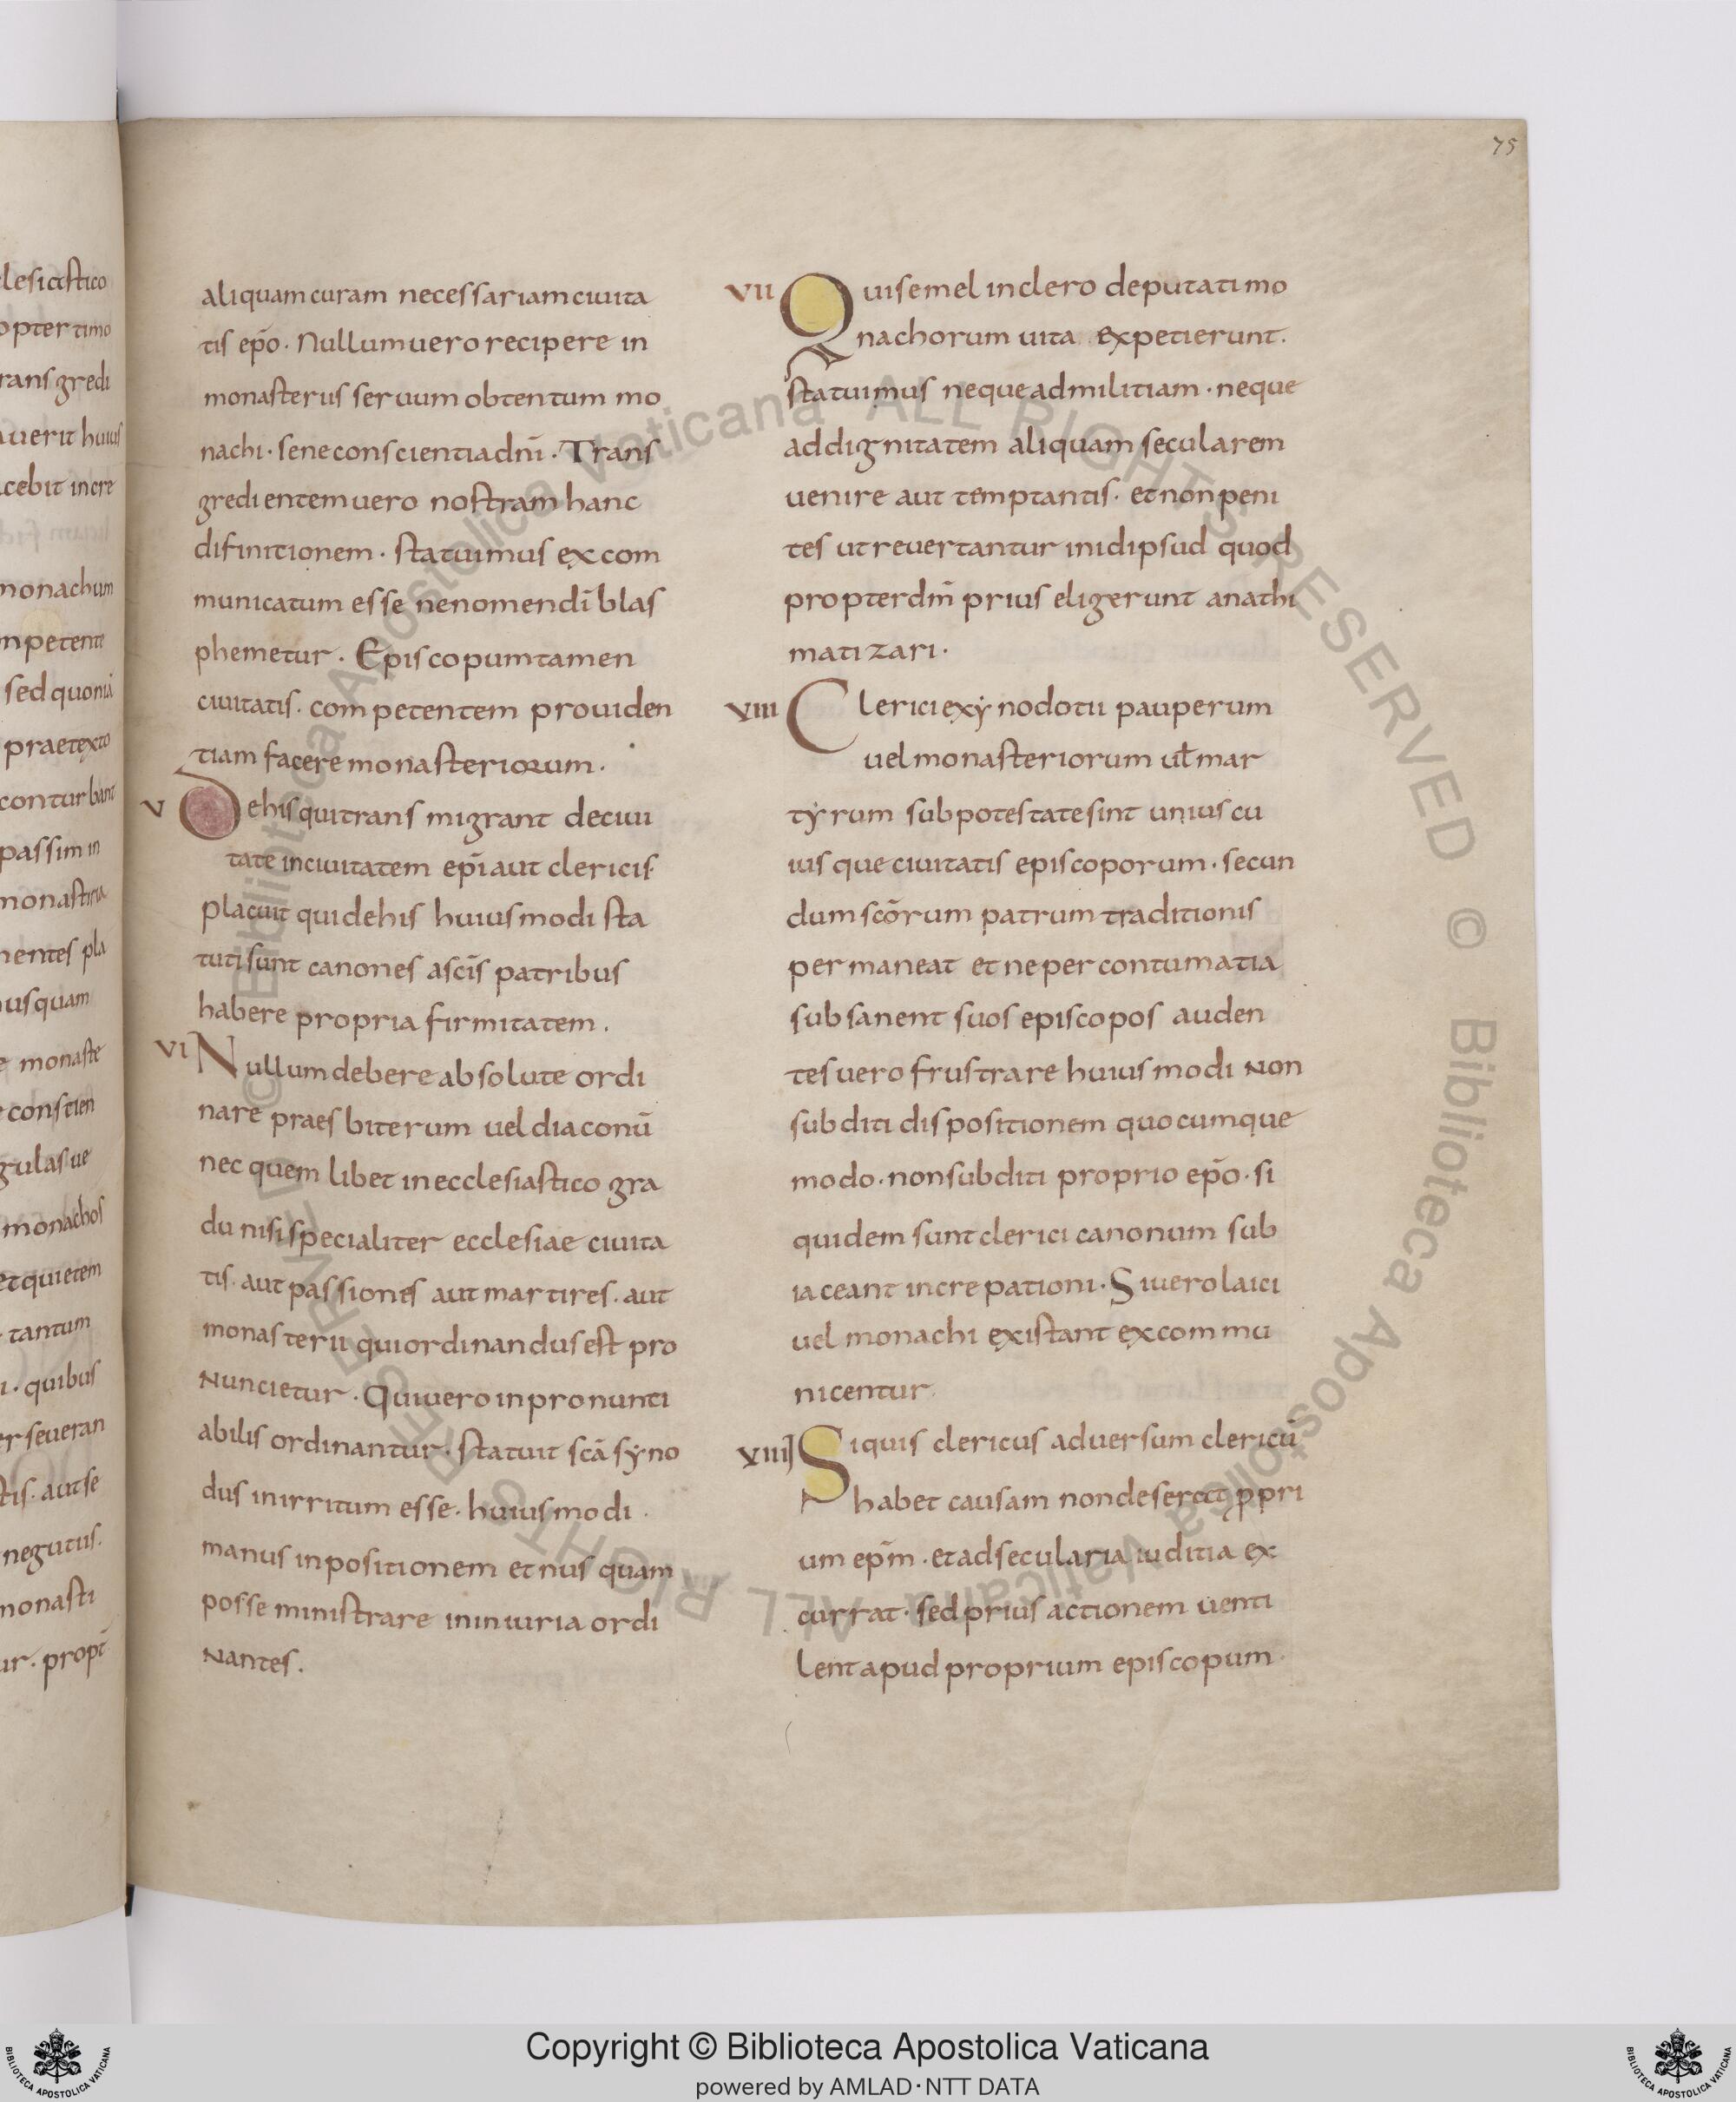 75
aliquam curam necessariam ciuita
tis ep̄o. Nullum uero recipere in
monasteriis seruum obtentum mo
nachi. sene conscientia dn̄i. Trans
gredientem uero nostram hanc
difinitionem. statuimus excom
municatum esse ne nomen dī blas
phemetur. Episcopum tamen
ciuitatis. competentem prouiden
tiam facere monasteriorum.
V De his qui transmigrant de ciui
tate in ciuitatem ep̄i aut clericis
placuit qui de his huiusmodi sta
tuti sunt canones a sc̄is patribus
habere propria firmitatem.
VI Nullum debere absolute ordi
nare praesbiterum uel diaconū
nec quem libet in ecclesiastico gra
du nisi specialiter ecclesiae ciuita
tis. aut passiones aut martires. aut
monasterii qui ordinandus est pro
nuncietur. Qui uero inpronunti
abilis ordinantur. statuit sc̄a syno
dus in irritum esse. huiusmodi
manus inpositionem et nusquam
posse ministrare in iniuria ordi
nantes.
VII Qui semel in clero deputati mo
nachorum uita expetierunt.
statuimus neque ad militiam. neque
ad dignitatem aliquam secularem
uenire aut temptantis. et non peni
tes ut reuertantur in id ipsud quod
propter dm̄ prius eligerunt anathi
matizari.
VIII Clerici exynodotii pauperum
uel monasteriorum ul̄ mar
tyrum sub potestate sint unius cu
iusque ciuitatis episcoporum. secun
dum sc̄orum patrum traditionis
permaneat et ne per contumatia
subsanent suos episcopos auden
tes uero frustrare huiusmodi non
subditi dispositionem quocumque
modo. non subditi proprio ep̄o. si
quidem sunt clerici canonum sub
iaceant increpationi. Si uero laici
uel monachi existant excommu
nicentur
VIIII Si quis clericus aduersum clericū
habet causam non deserat ppri
um ep̄m. et ad secularia iuditia ex
currat. sed prius actionem uenti
lent apud proprium episcopum
Copyright © Biblioteca Apostolica Vaticana
powered by AMLAD·NTT DATA